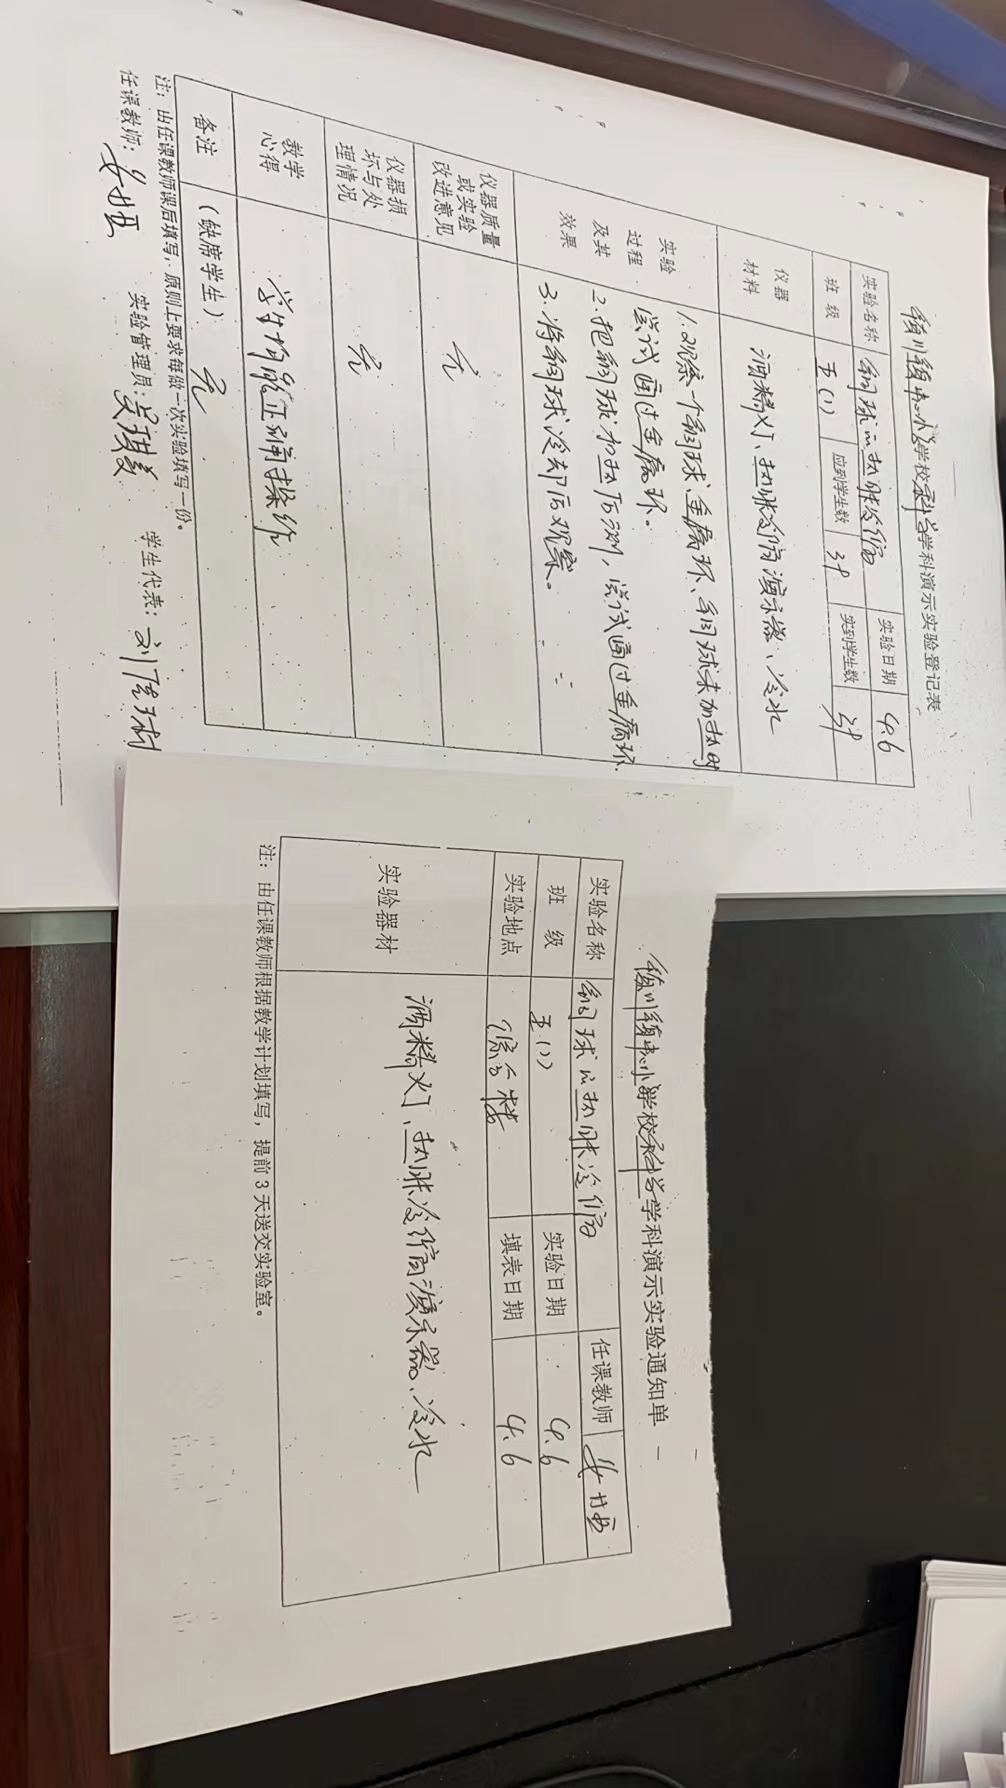 川镇中心小学校科学学科演示实验登记表
实验名称 铜球的热胀冷缩 实验日期 4.6
班 级 五(1) 应到学生数 39 实到学生数 39
仪器材料 酒精灯、热胀冷缩演示器、冷水
实验过程及其效果 1.观察一个铜球、金属环、铜球未加热时
尝试通过金属环。
2.把铜球加热后测,尝试通过金属环.
3.将铜球冷却后观察。
仪器质量或实验改进意见 无
仪器损坏与处理情况 无
教学心得 学生均能正确操作
备注 (缺席学生) 无
注:由任课教师课后填写,原则上要求每做一次实验填写一份。
任课教师: 实验管理员:吴琪 学生代表:刘
川镇中心小学校科学学科演示实验通知单
实验名称 铜球的热胀冷缩 任课教师
班 级 五(1) 实验日期 4.6
实验地点 综合楼 填表日期 4.6
实验器材 酒精灯、热胀冷缩演示器、冷水
注:由任课教师根据教学计划填写,提前3天送交实验室。